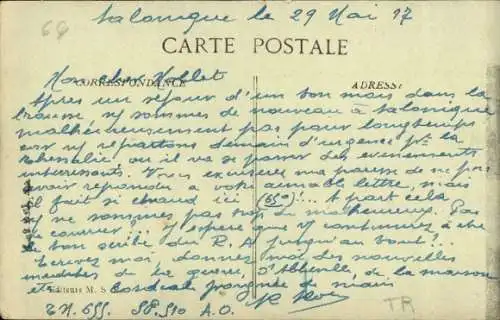 68
Salonique le 29 Mai 17
CARTE POSTALE
Mon cher Mollet
CORRESPONDANCE
ADRESSE
Après un séjour d'un bon mois dans la
brousse ns sommes de nouveau à Salonique
malheureusement pas pour longtemps
car ns repartons demain d'urgence pr la
Thessalie, ou il va se passer des évènements
intéressants. Vous excuserez ma paresse de ne pas
avoir répondu à votre aimable lettre, mais
il fait si chaud ici (65°)!... A part cela
ns ne sommes pas trop malheureux. Pas
de courrier... J'espère que vs continuez à être
le bon scribe du R.A jusqu'au bout?..
Ecrivez moi, donnez moi des nouvelles
de la guerre, d'Abbeville, de la maison
etc Cordiale poignée de main
Editeurs M. S.
T.M. 655. SP. 510 A.O.
TR